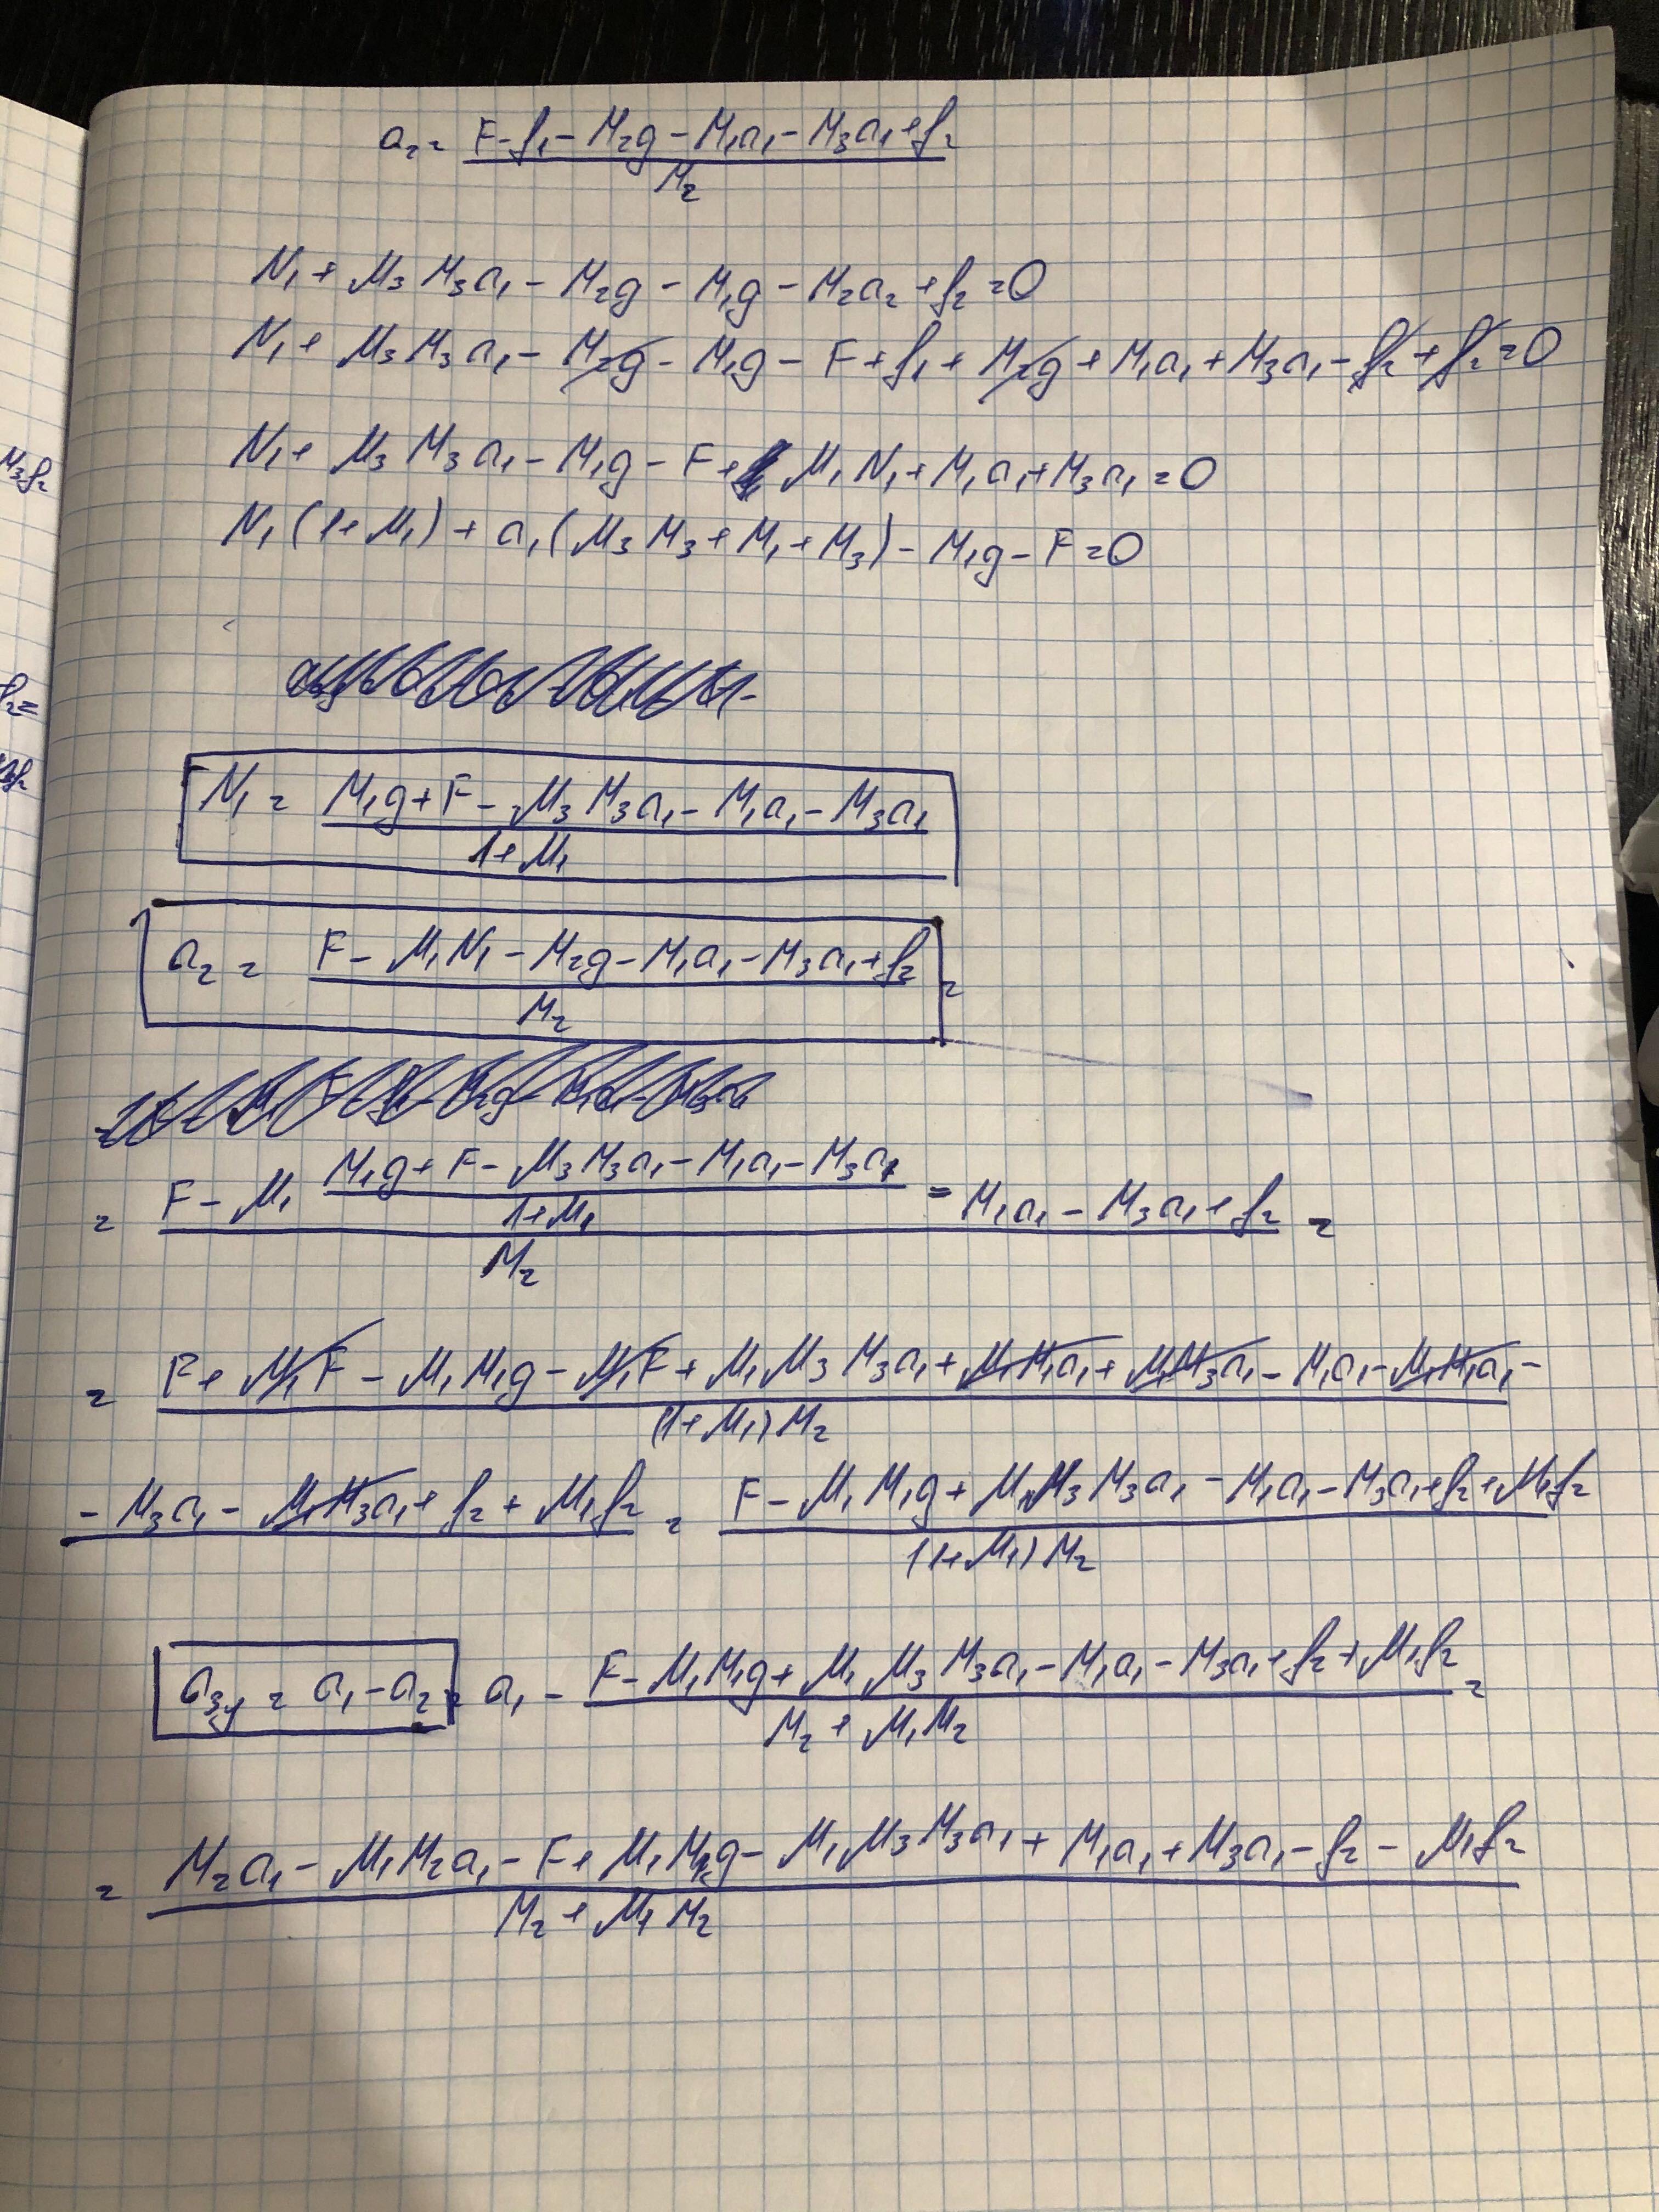 a₂ = (F - f₁ - M₂g - M₁a₁ - M₃a₁ + f₂) / M₂
N₁ + μ₃M₃a₁ - M₂g - M₁g - M₂a₂ + f₂ = 0
N₁ + μ₃M₃a₁ - M₂g - M₁g - F + f₁ + M₂g + M₁a₁ + M₃a₁ - f₂ + f₂ = 0
M₃f₂
N₁ + μ₃M₃a₁ - M₁g - F + μ₁N₁ + M₁a₁ + M₃a₁ = 0
N₁(1 + μ₁) + a₁(μ₃M₃ + M₁ + M₃) - M₁g - F = 0
f₂ =
N₁ = (M₁g + F - μ₃M₃a₁ - M₁a₁ - M₃a₁) / (1 + μ₁)
a₂ = (F - μ₁N₁ - M₂g - M₁a₁ - M₃a₁ + f₂) / M₂ =
= (F - μ₁ (M₁g + F - μ₃M₃a₁ - M₁a₁ - M₃a₁) / (1 + μ₁) - M₁a₁ - M₃a₁ + f₂) / M₂ =
= F + μ₁F - μ₁M₁g - μ₁F + μ₁μ₃M₃a₁ + μ₁M₁a₁ + μ₁M₃a₁ - M₁a₁ - μ₁M₁a₁ - / (1 + μ₁)M₂
- M₃a₁ - μ₁M₃a₁ + f₂ + μ₁f₂ = (F - μ₁M₁g + μ₁μ₃M₃a₁ - M₁a₁ - M₃a₁ + f₂ + μ₁f₂) / (1 + μ₁)M₂
a₃y = a₁ - a₂ = a₁ - (F - μ₁M₁g + μ₁μ₃M₃a₁ - M₁a₁ - M₃a₁ + f₂ + μ₁f₂) / (M₂ + μ₁M₂) =
= (M₂a₁ - μ₁M₂a₁ - F + μ₁M₁g - μ₁μ₃M₃a₁ + M₁a₁ + M₃a₁ - f₂ - μ₁f₂) / (M₂ + μ₁M₂)